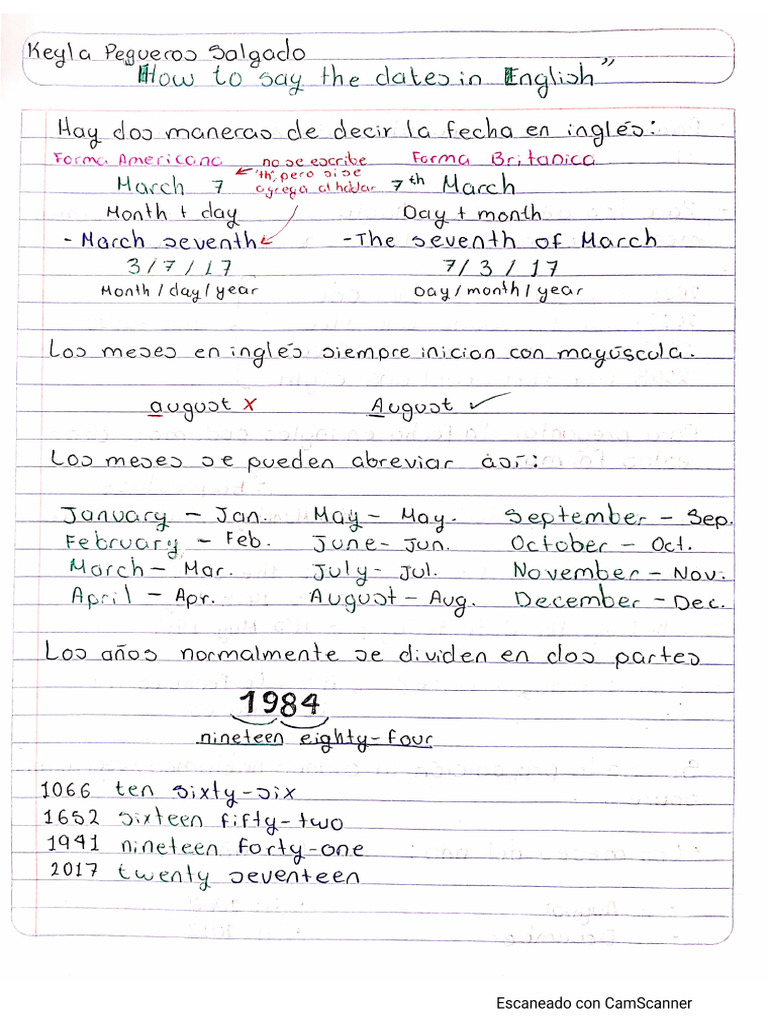 Keyla Pegueros Salgado
"How to say the dates in English"
Hay dos maneras de decir la fecha en inglés:
Forma Americana no se escribe Forma Britanica
"th", pero si se
March 7 agrega al hablar 7th March
Month + day Day + month
- March seventh - The seventh of March
3/7/17 7/3/17
Month/day/year Day/month/year
Los meses en inglés siempre inician con mayúscula.
august x August ✓
Los meses se pueden abreviar así:
January - Jan. May - May. September - Sep.
February - Feb. June - Jun. October - Oct.
March - Mar. July - Jul. November - Nov.
April - Apr. August - Aug. December - Dec.
Los años normalmente se dividen en dos partes
1984
nineteen eighty-four
1066 ten sixty-six
1652 sixteen fifty-two
1941 nineteen forty-one
2017 twenty seventeen
Escaneado con CamScanner